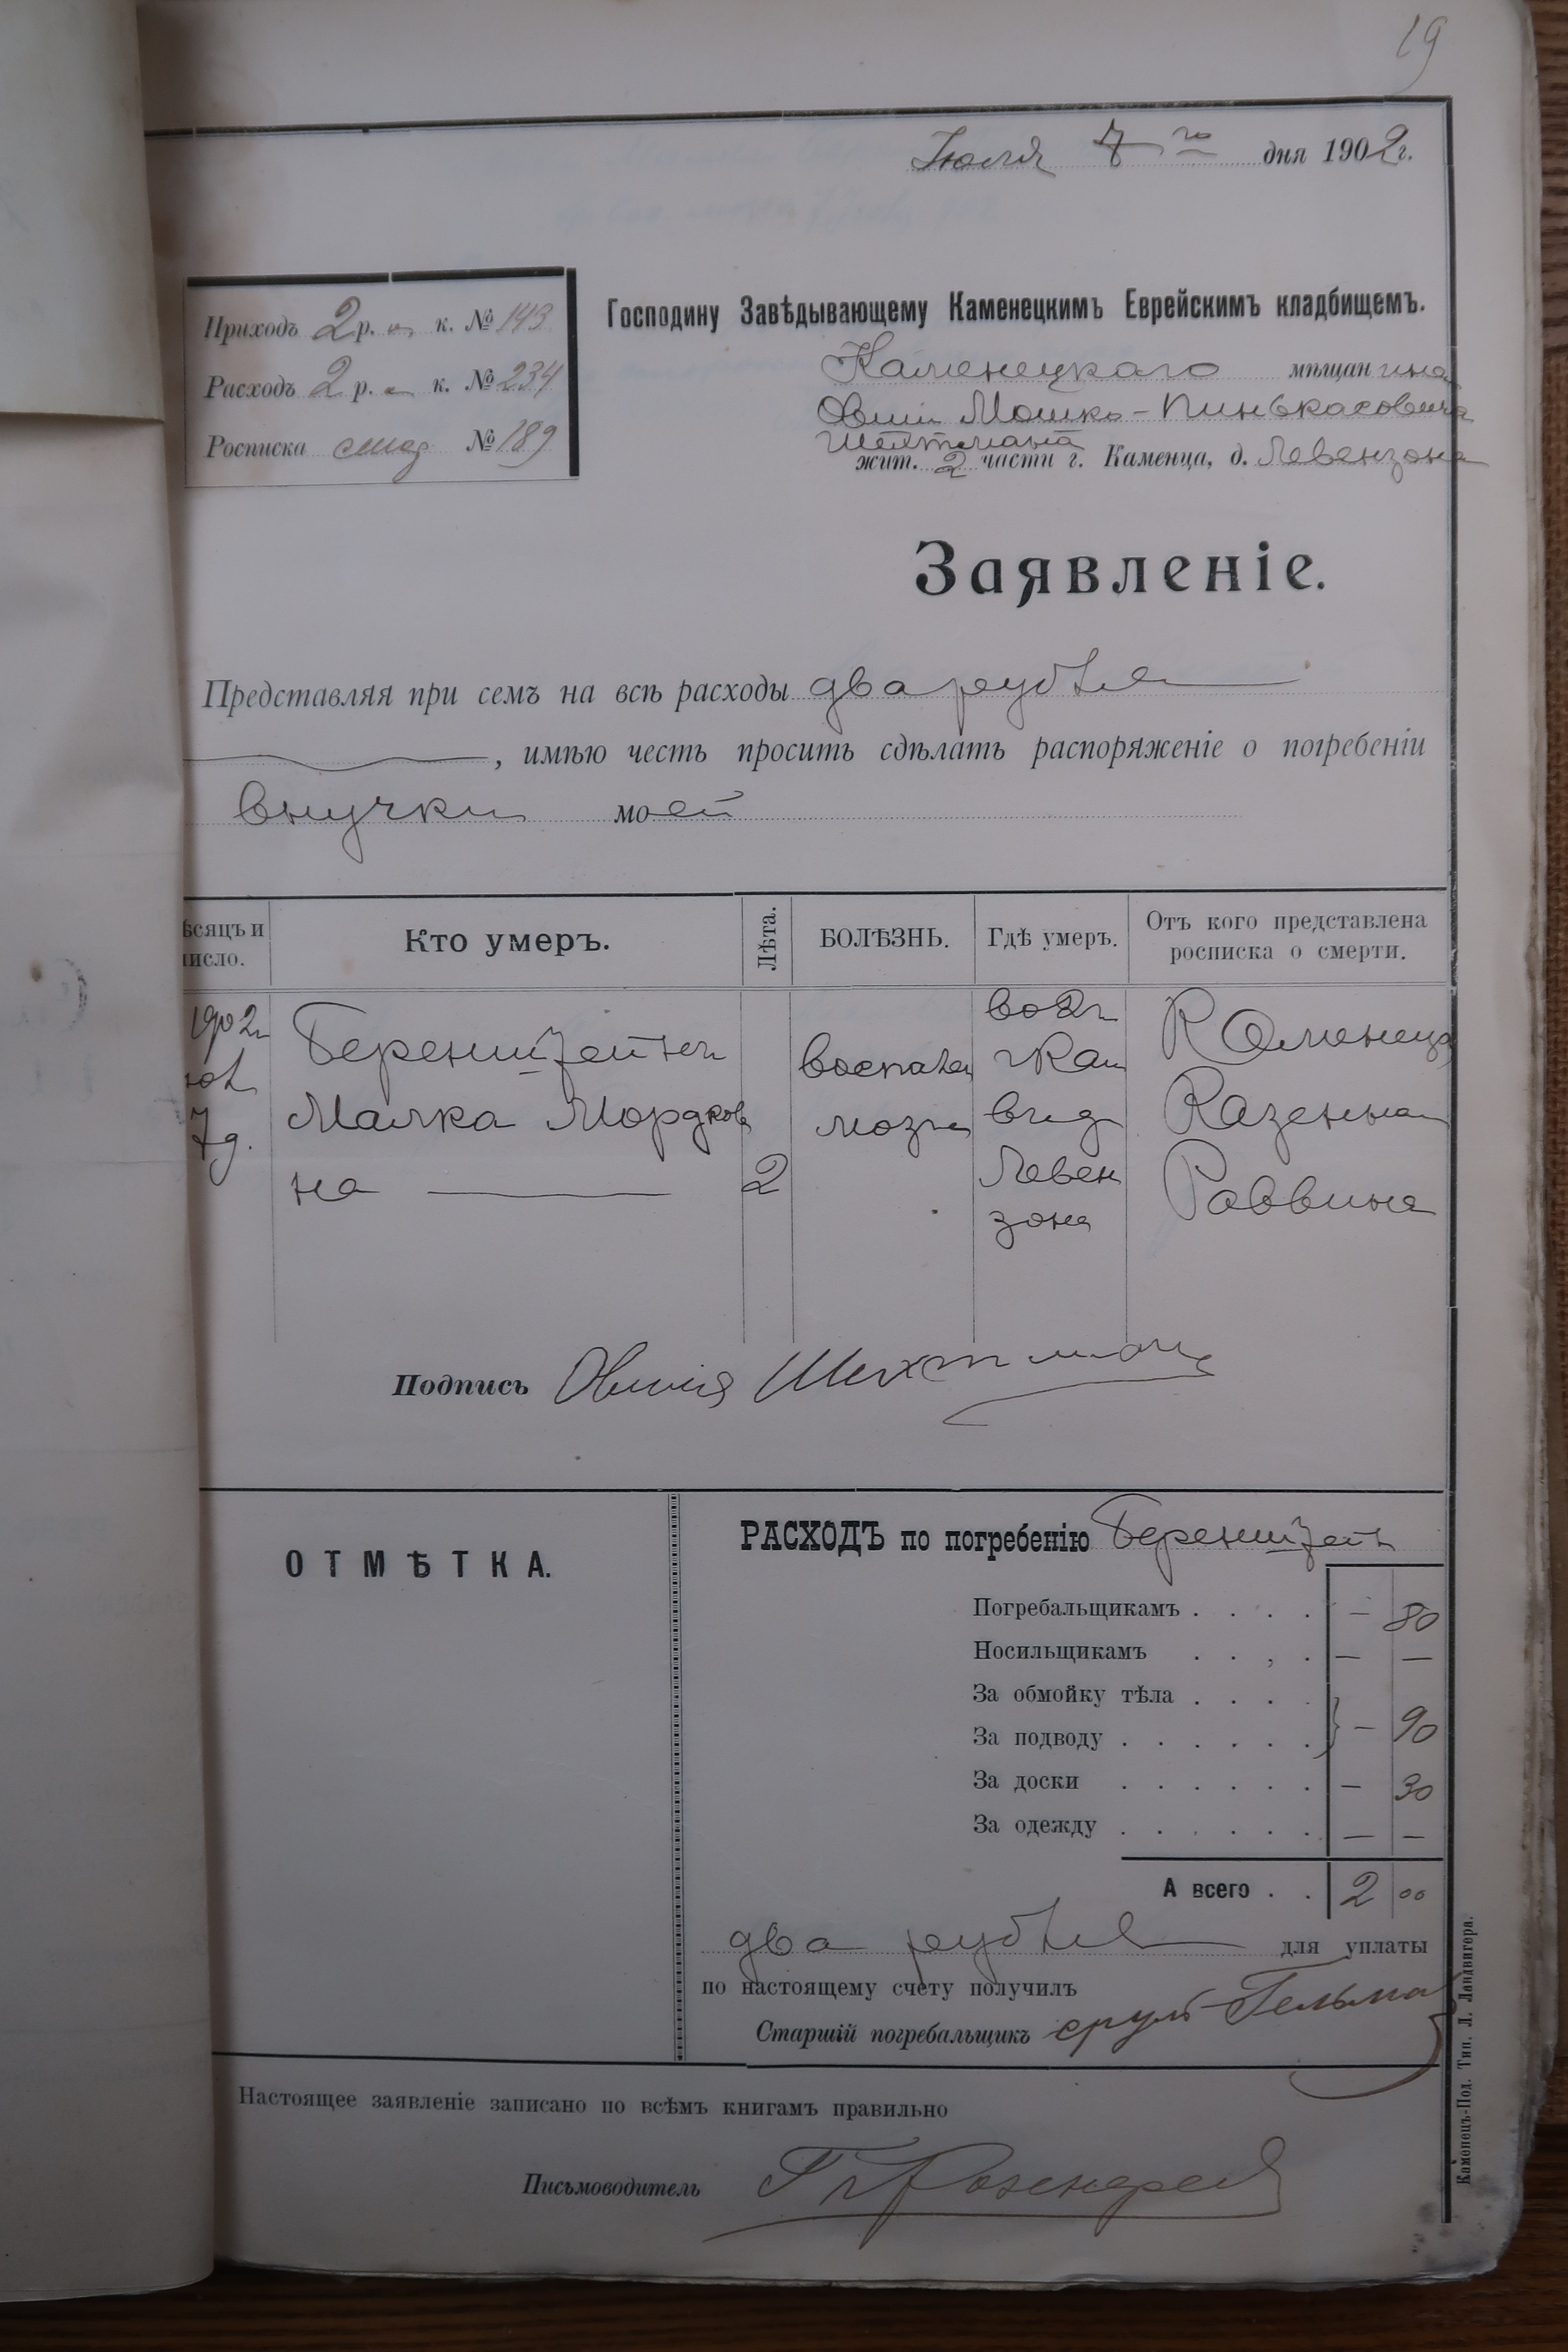 19
Іюля 7го дня 1902 г.
Приходъ 2 р. — к. № 143
Расходъ 2 р. — к. № 234
Росписка № 189
Господину Завѣдывающему Каменецкимъ Еврейскимъ кладбищемъ.
Каменецкаго мѣщанина
Овшія Мошко-Пинькасовича
Шехтмана
жит. 2 части г. Каменца, д. Левензона
Заявленіе.
Представляя при семъ на всѣ расходы два рубля
, имѣю честь просить сдѣлать распоряженіе о погребеніи
внучки моей
ѣсяцъ и число. Кто умеръ. Лѣта. БОЛѢЗНЬ. Гдѣ умеръ. Отъ кого представлена росписка о смерти.
1902 во 2 ч Каменецка
Беренштейнъ воспален г Кам
юл Малка Мордков мозга въ д Казенна
7 д. на — 2 Левен Раввина
зона
Подпись Овшія Шехтманъ
ОТМѢТКА.
РАСХОДЪ по погребенію Беренштейнъ
Погребальщикамъ . . . . — 80
Носильщикамъ . . , . — —
За обмойку тѣла . . . .
За подводу . . . . . . } — 90
За доски . . . . . . — 30
За одежду . . . . . . — —
А всего . . 2 00
два рубля для уплаты
по настоящему счету получилъ
Старшій погребальщикъ Сруль Гельма
Настоящее заявленіе записано по всѣмъ книгамъ правильно
Письмоводитель
Каменецъ-Под. Тип. Л. Ландвигера.